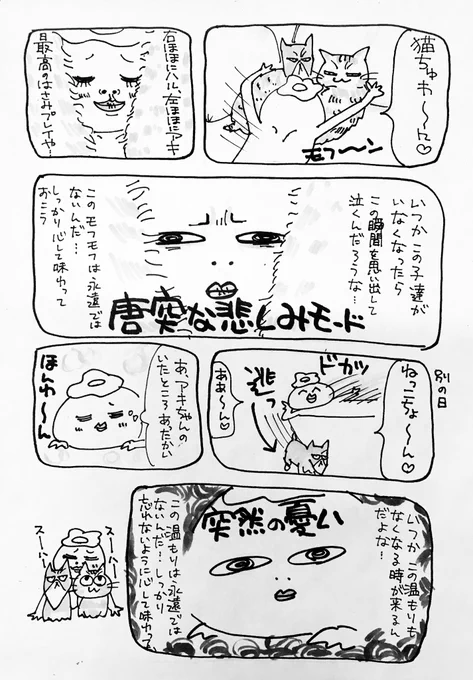 猫ちゅわ〜〜ん♡
モフ〜〜ン
右ほほにハル、左ほほにアキ
最高のはさみプレイや…
いつかこの子達が
いなくなったら
この瞬間を思い出して
泣くんだろうな…
このモフモフは永遠では
ないんだ…
しっかり心して味わって
おこう
唐突な悲しみモード
別の日
ねっこちょ〜〜ん♡
ドカッ
逃っ
ああ〜〜ん♡
あ、アキちゃんの
いたところあったかい
ほんわ〜〜ん
いつかこの温もりも
なくなる時が来るん
だよな…
突然の憂い
この温もりは永遠では
ないんだ…しっかり
忘れないように心して味わって
スーハー
スーハー